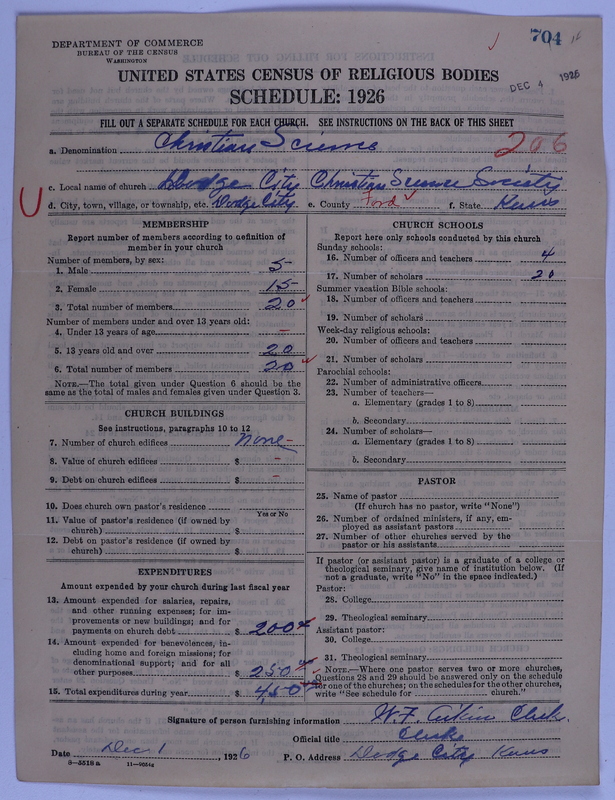 704
DEPARTMENT OF COMMERCE
BUREAU OF THE CENSUS
WASHINGTON
DEC 4 1926
UNITED STATES CENSUS OF RELIGIOUS BODIES
SCHEDULE: 1926
FILL OUT A SEPARATE SCHEDULE FOR EACH CHURCH. SEE INSTRUCTIONS ON THE BACK OF THIS SHEET
a. Denomination Christian Science 206
c. Local name of church Dodge City Christian Science Society
d. City, town, village, or township, etc. Dodge City e. County Ford f. State Kans
MEMBERSHIP
Report number of members according to definition of
member in your church
Number of members, by sex:
1. Male 5
2. Female 15
3. Total number of members 20
Number of members under and over 13 years old:
4. Under 13 years of age –
5. 13 years old and over 20
6. Total number of members 20
NOTE.—The total given under Question 6 should be
same as the total of males and females given under Question 3.
CHURCH BUILDINGS
See instructions, paragraphs 10 to 12
7. Number of church edifices none
8. Value of church edifices $ –
9. Debt on church edifices $ –
10. Does church own pastor's residence
Yes or No
11. Value of pastor's residence (if owned by
church) $
12. Debt on pastor's residence (if owned by
church) $
EXPENDITURES
Amount expended by your church during last fiscal year
13. Amount expended for salaries, repairs,
and other running expenses; for im-
provements or new buildings; and for
payments on church debt $ 200
14. Amount expended for benevolences, in-
cluding home and foreign missions; for
denominational support; and for all
other purposes $ 250
15. Total expenditures during year $ 450
CHURCH SCHOOLS
Report here only schools conducted by this church
Sunday schools:
16. Number of officers and teachers 4
17. Number of scholars 20
Summer vacation Bible schools:
18. Number of officers and teachers
19. Number of scholars
Week-day religious schools:
20. Number of officers and teachers
21. Number of scholars
Parochial schools:
22. Number of administrative officers
23. Number of teachers—
a. Elementary (grades 1 to 8)
b. Secondary
24. Number of scholars—
a. Elementary (grades 1 to 8)
b. Secondary
PASTOR
25. Name of pastor
(If church has no pastor, write "None")
26. Number of ordained ministers, if any, em-
ployed as assistant pastors
27. Number of other churches served by the
pastor or his assistants
If pastor (or assistant pastor) is a graduate of a college or
theological seminary, give name of institution below. (If
not a graduate, write "No" in the space indicated.)
Pastor:
28. College
29. Theological seminary
Assistant pastor:
30. College
31. Theological seminary
NOTE.—Where one pastor serves two or more churches,
Questions 28 and 29 should be answered only on the schedule
for one of the churches; on the schedules for the other churches,
write "See schedule for church."
Signature of person furnishing information W. F. Aikin Clerk
Official title Clerk
Date Dec 1, 1926 P. O. Address Dodge City Kans
8—5518a 11—9054a